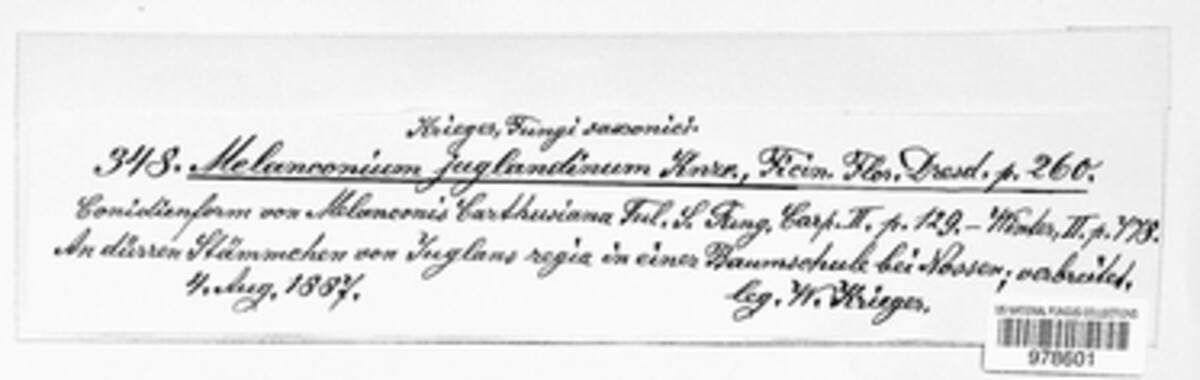 Krieger, Fungi saxonici.
348. Melanconium juglandinum Knze., Ficin. Flor. Dresd. p. 260.
Conidienform von Melanconis Carthusiana Tul. S. Fung. Carp. II. p. 129. – Winter, II. p. 778.
An dürren Stämmchen von Juglans regia in einer Baumschule bei Nossen, verbreitet.
4. Aug. 1887.
leg. W. Krieger.
US NATIONAL FUNGUS COLLECTIONS
978601